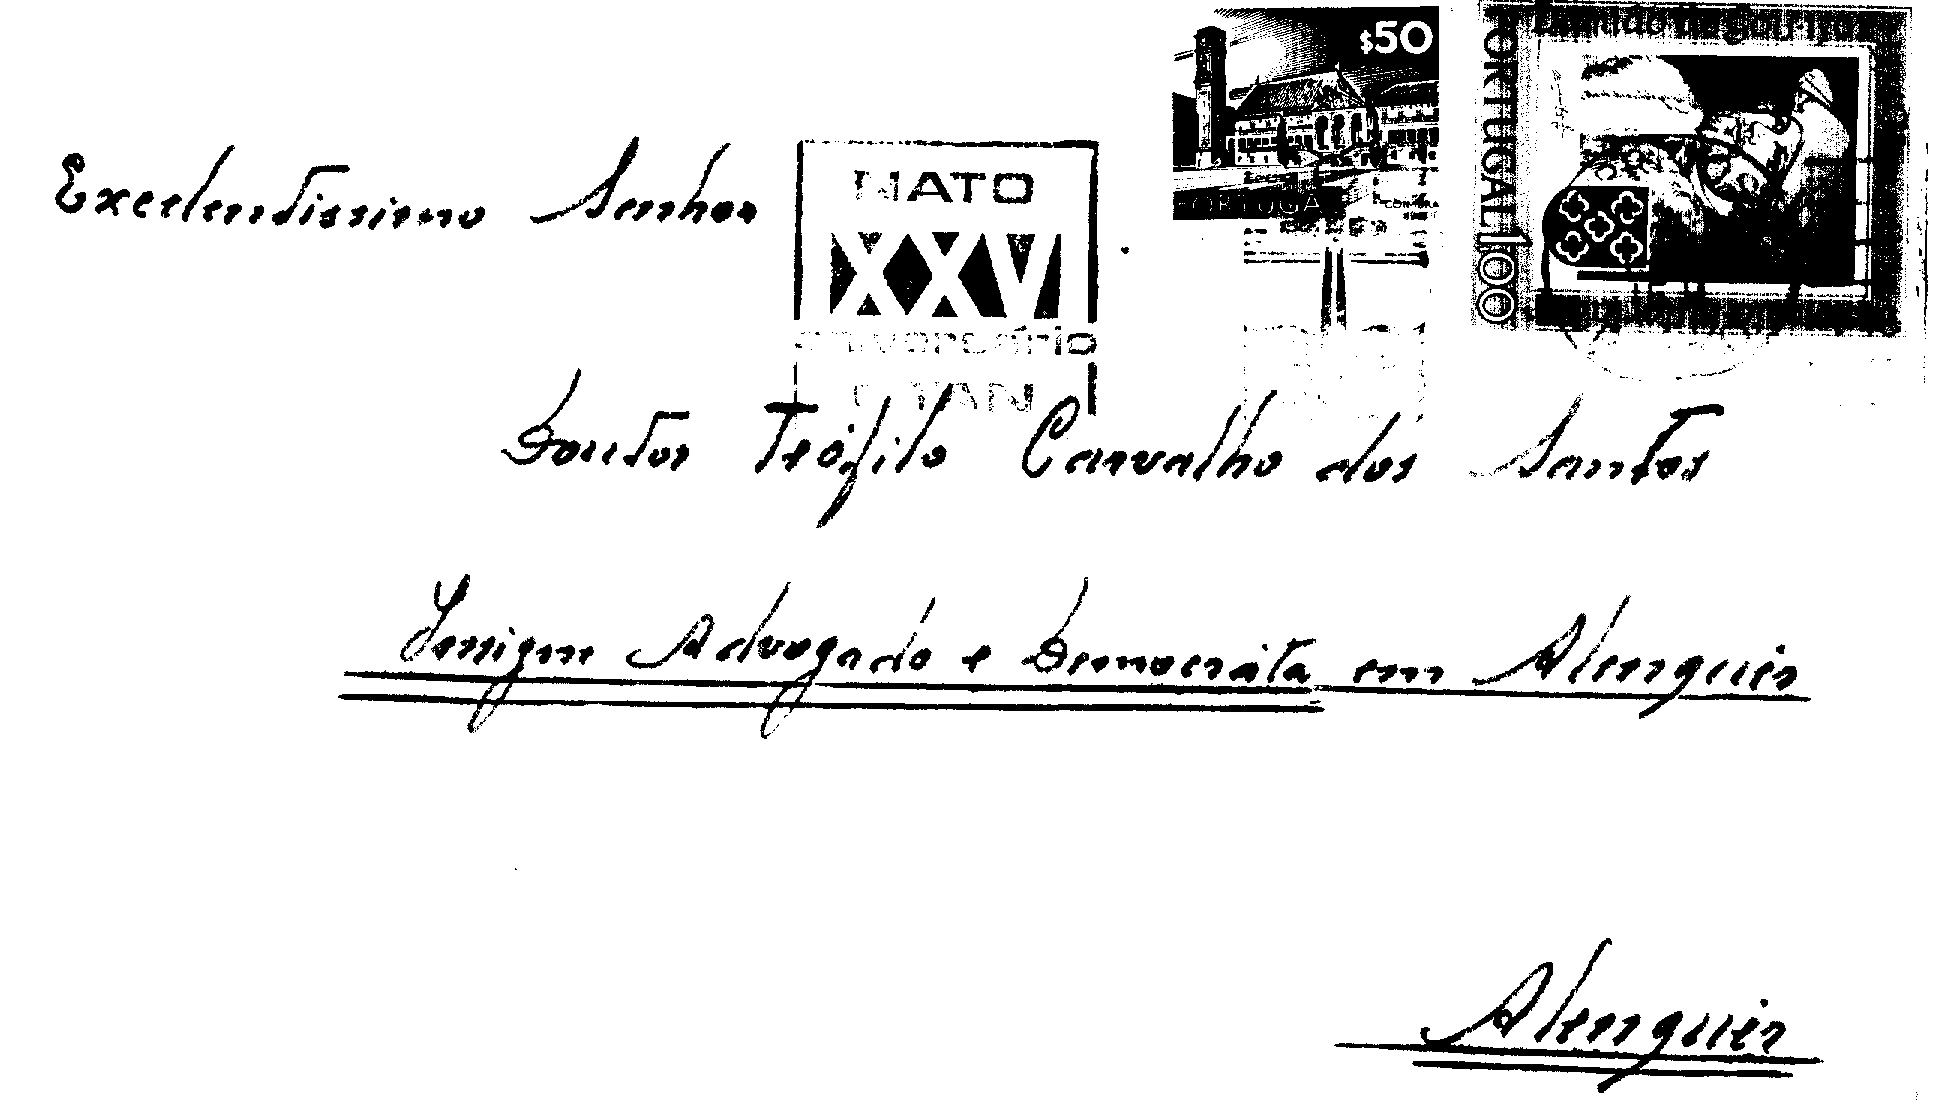 $50
PORTUGAL 1$00
Excelentissimo Senhor
NATO
XXV
aniversário
OTAN
PORTUGAL
Doutor Teófilo Carvalho dos Santos
Insigne Advogado e Democrata em Alenquer
Alenquer